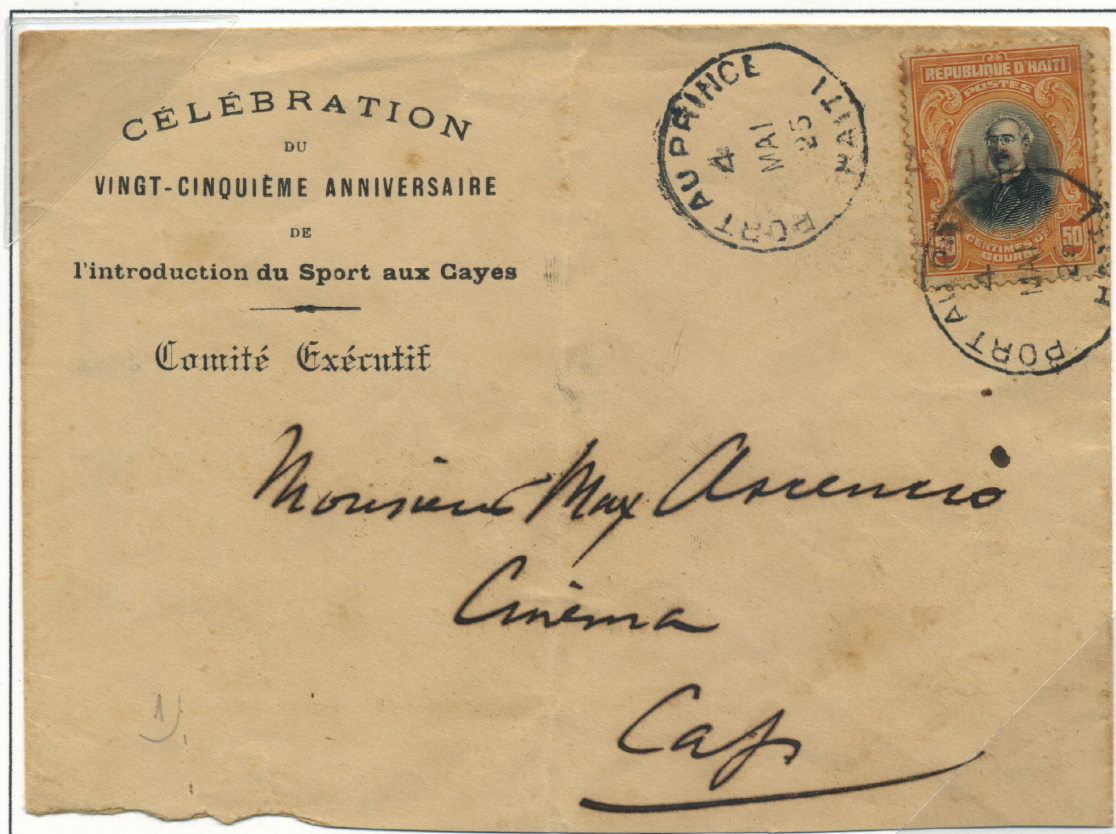 CÉLÉBRATION
DU
VINGT-CINQUIÈME ANNIVERSAIRE
DE
l'introduction du Sport aux Cayes
Comité Exécutif
PORT AU PRINCE HAITI
4
MAI
25
RÉPUBLIQUE D'HAITI
POSTES
CENTIMES DE
GOURDE
50
PORT AU HAITI
4
MAI
Monsieur Max Ascencio
Cinéma
Cap
1